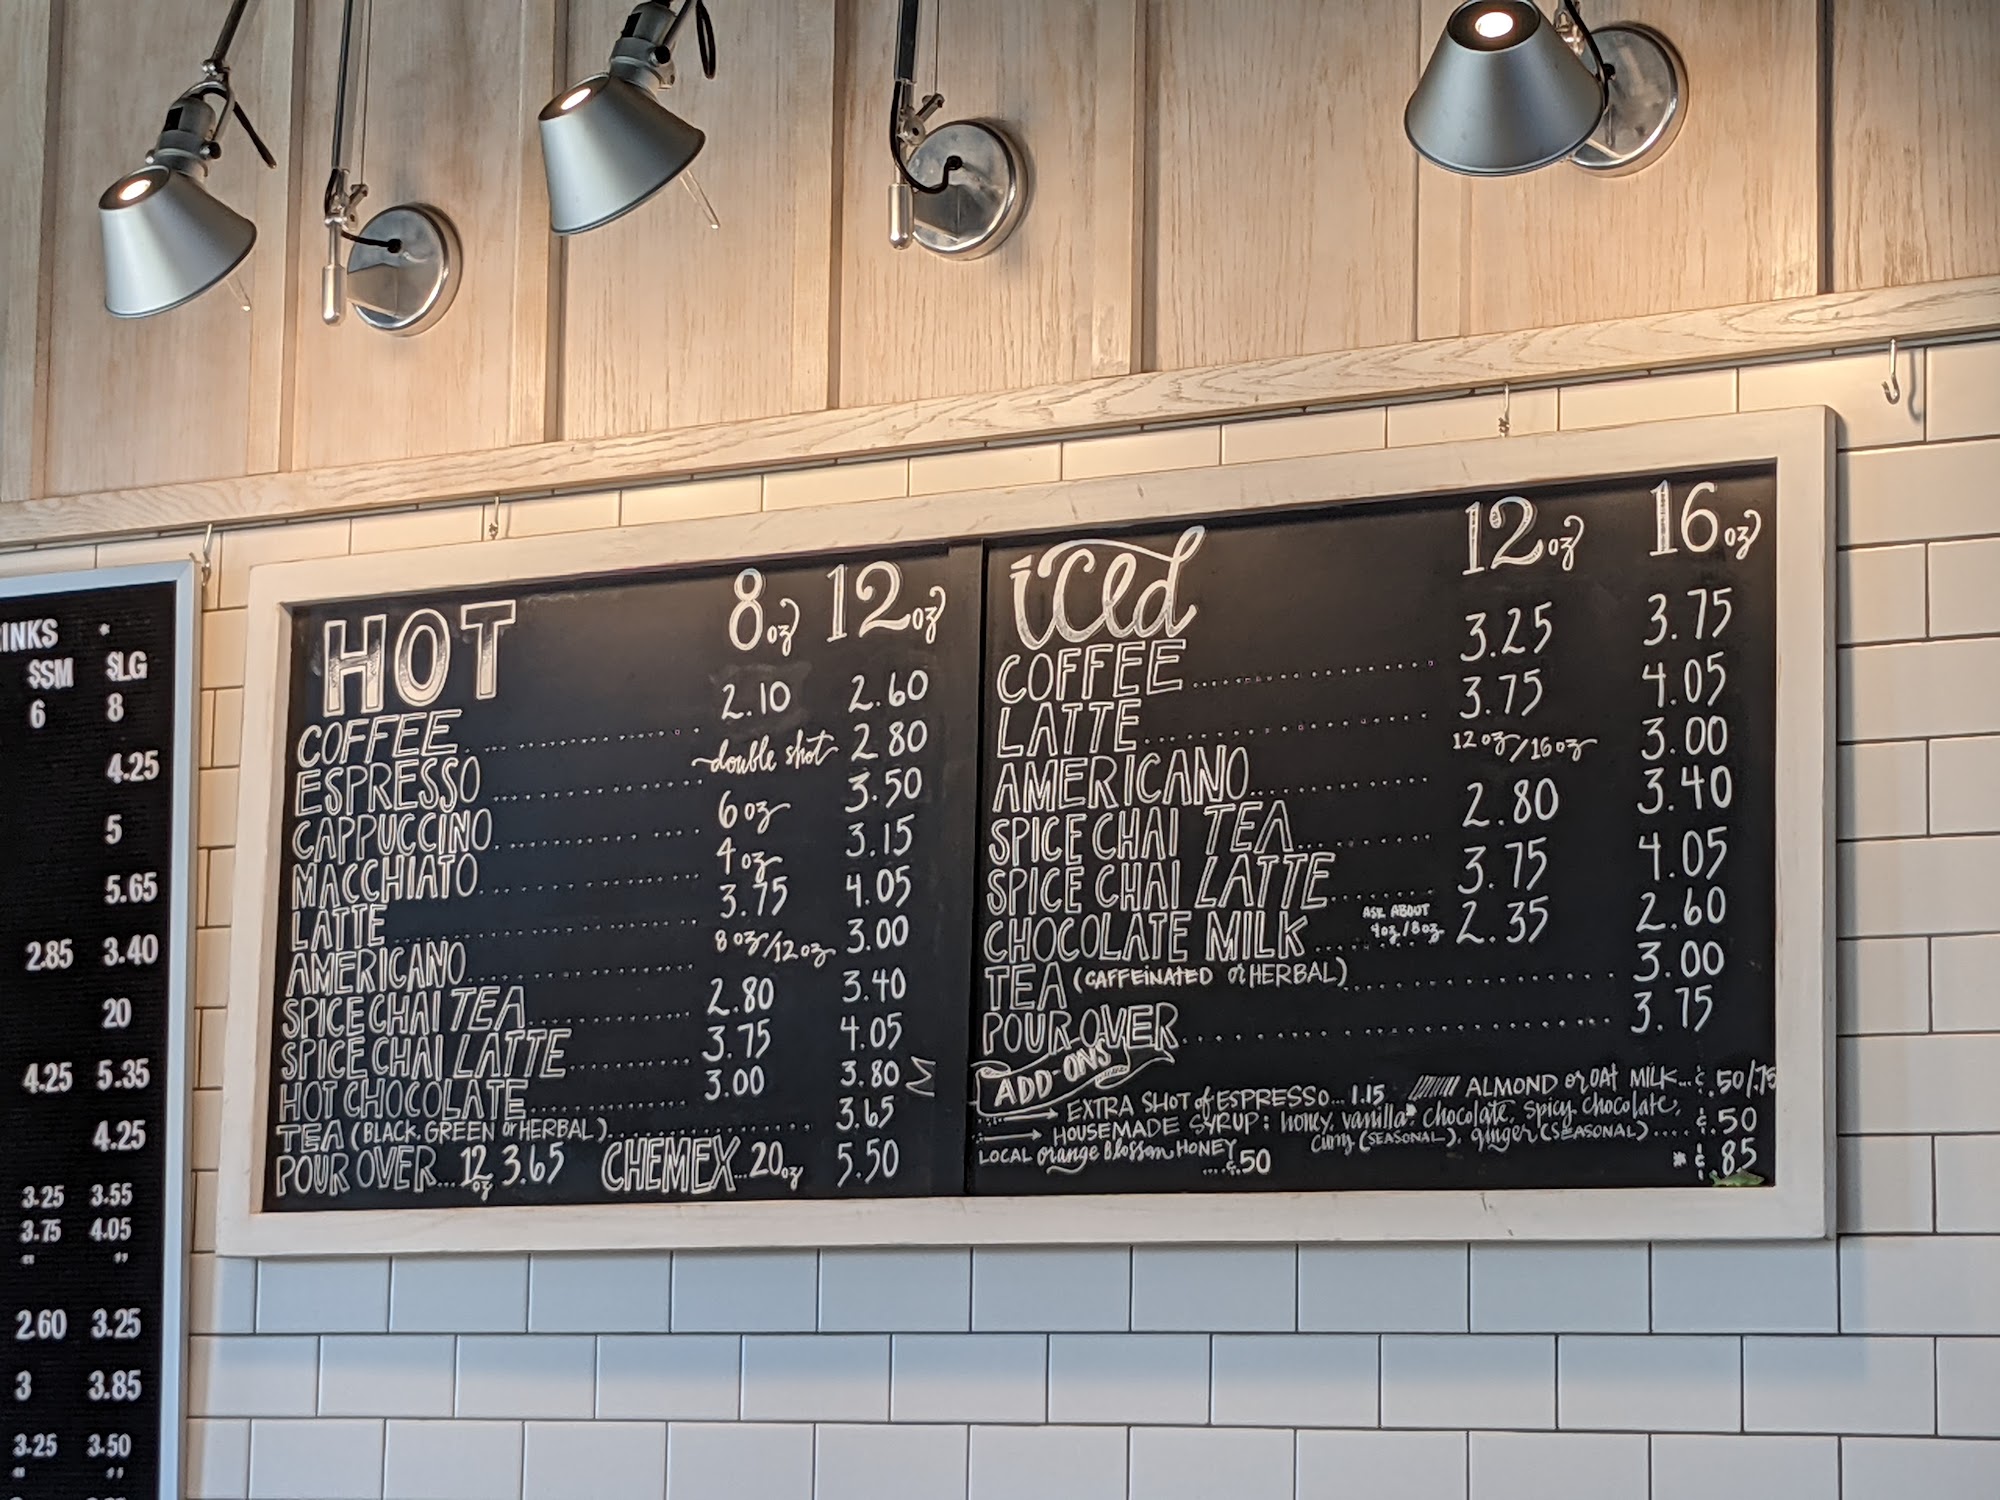 INKS *
$SM $LG
6 8
4.25
5
5.65
2.85 3.40
20
4.25 5.35
4.25
3.25 3.55
3.75 4.05
" "
2.60 3.25
3 3.85
3.25 3.50
" "
HOT 8oz 12oz
COFFEE 2.10 2.60
ESPRESSO double shot 2.80
CAPPUCCINO 6oz 3.50
MACCHIATO 4oz 3.15
LATTE 3.75 4.05
AMERICANO 8oz/12oz 3.00
SPICE CHAI TEA 2.80 3.40
SPICE CHAI LATTE 3.75 4.05
HOT CHOCOLATE 3.00 3.80
TEA (BLACK, GREEN or HERBAL) 3.65
POUR OVER... 12oz 3.65 CHEMEX... 20oz 5.50
iced 12oz 16oz
COFFEE 3.25 3.75
LATTE 3.75 4.05
AMERICANO 12oz/16oz 3.00
SPICE CHAI TEA 2.80 3.40
SPICE CHAI LATTE 3.75 4.05
CHOCOLATE MILK ASK ABOUT 4oz/8oz 2.35 2.60
TEA (CAFFEINATED or HERBAL) 3.00
POUR OVER 3.75
ADD-ONS
EXTRA SHOT of ESPRESSO... 1.15 ALMOND or OAT MILK... ¢.50/.75
HOUSEMADE SYRUP: honey, vanilla*, chocolate, spicy chocolate,
curry (SEASONAL), ginger (SEASONAL).... ¢.50
LOCAL orange Blossom HONEY ....¢.50 * ¢.85